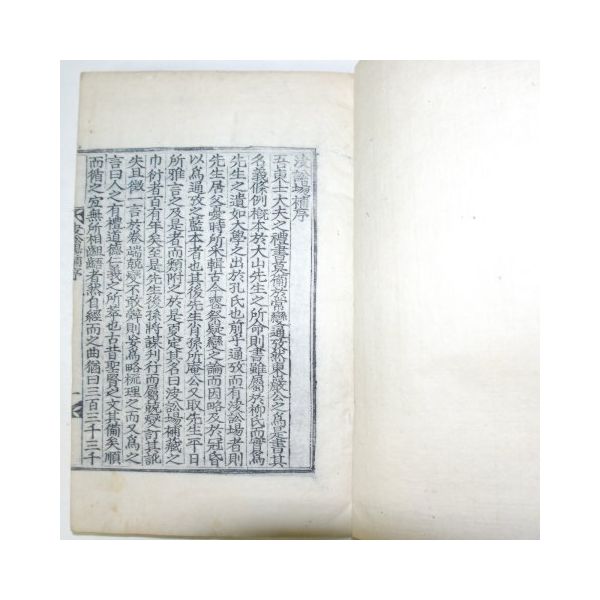 決訟場補序
吾東士大夫之禮書莫備於常變通攷然東巖公之爲是書其
名義條例槪本於大山先生之所命則書雖屬於柳氏而實爲
先生之遺如大學之出於孔氏也前乎通攷而有決訟場者則
先生居父憂時所裒輯古今喪祭疑變之論而因略及於冠昏
以爲通攷之藍本者也其後先生肖孫所庵公又取先生平日
所雅言之及是者而類附之於是更定其名曰決訟場補藏之
巾衍者百有年矣至是先生後孫將謀刋行而屬兢燮訂其訛
失且徵一言於卷端兢燮不敢辭則妄爲略梳理之而又爲之
言曰人之有禮道德仁義之所萃也古昔聖賢之文其備矣順
而循之宜無所相齟齬者然自經而之曲猶曰三百三千三千
決訟場補序
一